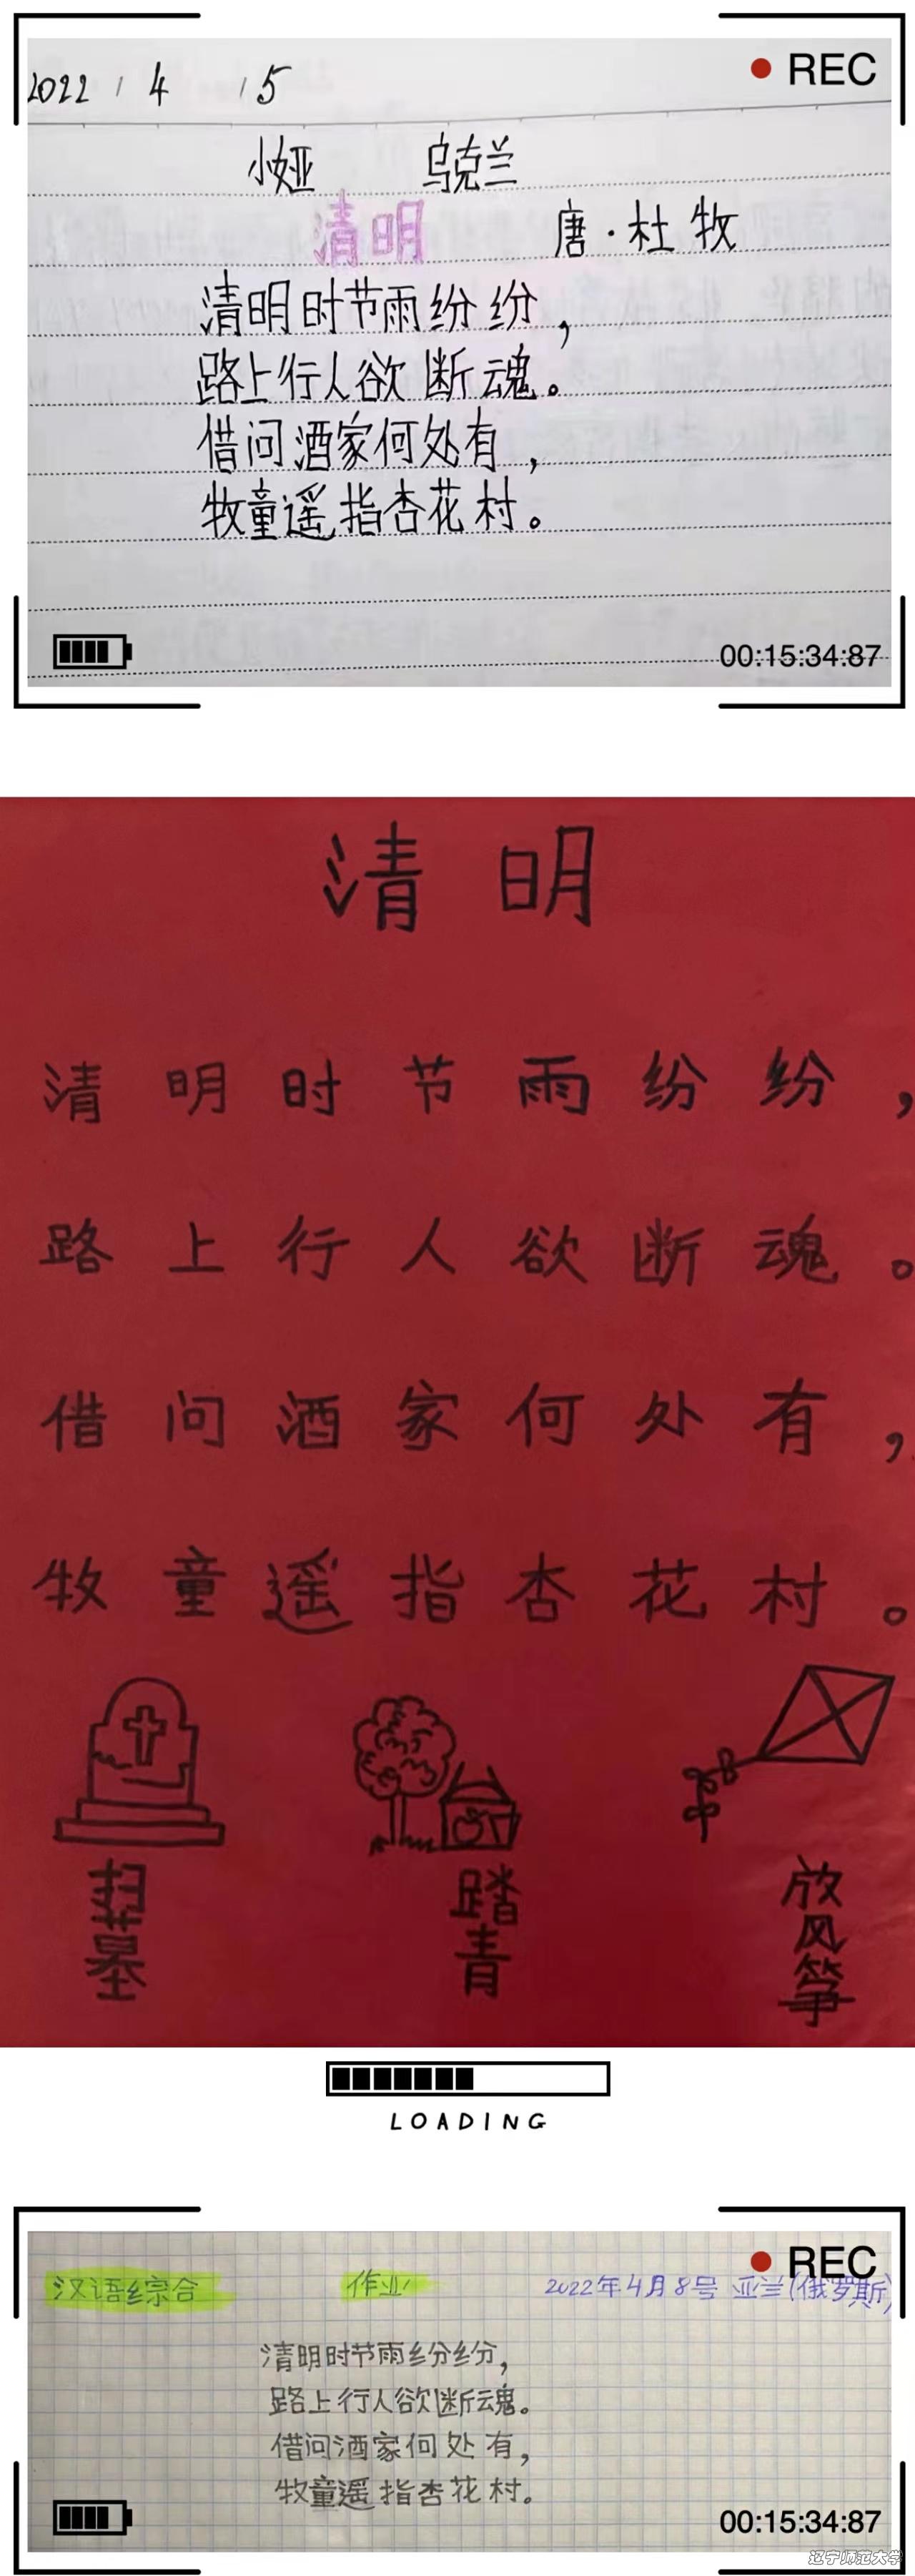 2022 / 4 / 5
REC
小娅 乌克兰
清明 唐·杜牧
清明时节雨纷纷，
路上行人欲断魂。
借问酒家何处有，
牧童遥指杏花村。
00:15:34:87
清明
清明时节雨纷纷，
路上行人欲断魂。
借问酒家何处有，
牧童遥指杏花村。
扫墓
踏青
放风筝
LOADING
REC
汉语综合 作业 2022年4月8号 亚兰(俄罗斯)
清明时节雨纷纷，
路上行人欲断魂。
借问酒家何处有，
牧童遥指杏花村。
00:15:34:87
辽宁师范大学